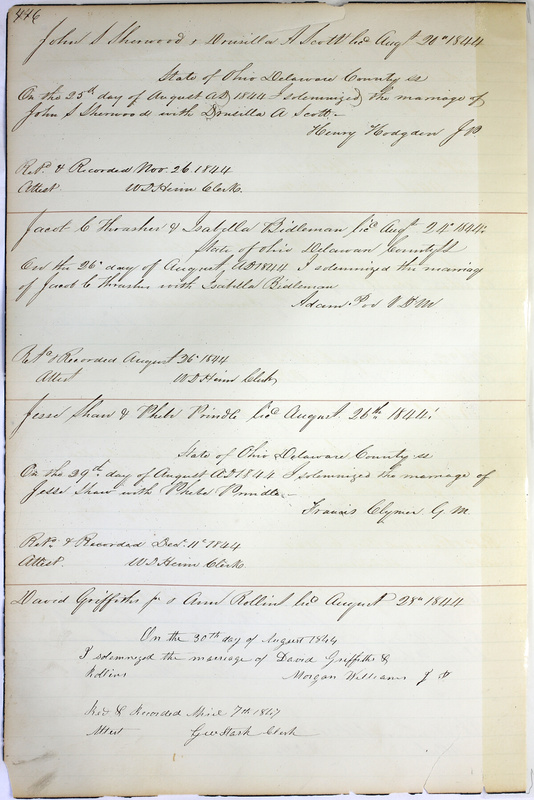 446
John S Sherwood & Drusilla A Scott licd Augt 26th 1844
State of Ohio Delaware County ss
On the 25th day of August AD 1844 I solemnized the marriage of
John S Sherwood with Drusilla A Scott.
Henry Hodgden J P
Retd. & Recorded Nov. 26. 1844
Attest W D Heim Clerk.
Jacob C Thrasher & Isabella Bidleman licd Augt 24th 1844.
State of Ohio Delaware County SS
On the 26th day of August, AD 1844 I solemnized the marriag
of Jacob C Thrasher with Isabella Bidleman
Adam Poe V D M
Retd & Recorded August 26th 1844
Attest W D Heim Clerk
Jesse Shaw & Phebe Prindle licd August 26th 1844.
State of Ohio Delaware County ss
On the 29th day of August AD 1844 I solemnized the marriage of
Jesse Shaw with Phebe Prindle
Francis Clymer G. M.
Retd. & Recorded Decr. 11th 1844
Attest. W D Heim Clerk
David Griffiths jr & Ann Rollins licd August 28th 1844
On the 30th day of August 1844
I solemnized the marriage of David Griffiths &
Rollins Morgan Williams J P
Recd & Recorded April 7th 1847
Attest G W Stark Clerk